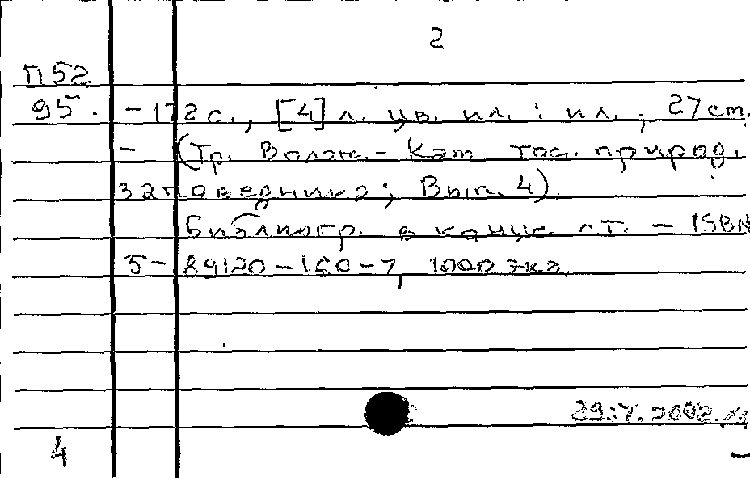 2
П52
95. -172 с., [4] л. цв. ил. : ил. ; 27 cm.
- (Тр. Волж.-Кам гос. природ.
заповедника; Вып. 4).
Библиогр. в конце ст. - ISBN
5-89120-160-7, 1000 экз.
29.V.2002.
4